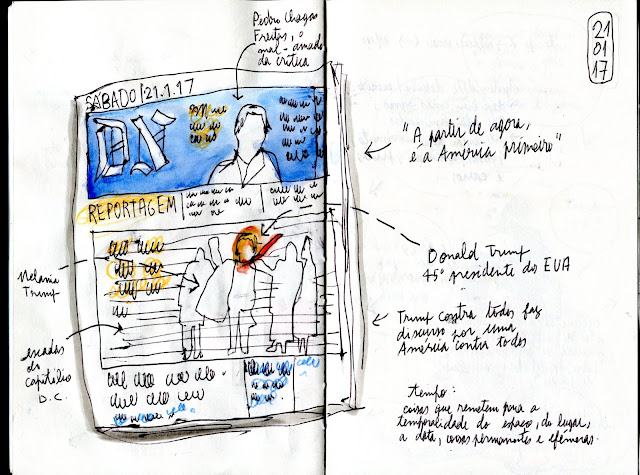 Pedro Chagas
Freitas, o
mal-amado
da crítica
21
01
17
SÁBADO/21.1.17
DN
"A partir de agora,
é a América primeiro"
REPORTAGEM
Donald Trump
45º presidente do EUA
Melania
Trump
escadas
do
capitólio
D.C.
Trump contra todos faz
discurso por uma
América contra todos
tempo:
coisas que remetem para a
temporalidade do espaço, do lugar,
a data, coisas permanentes e efémeras.